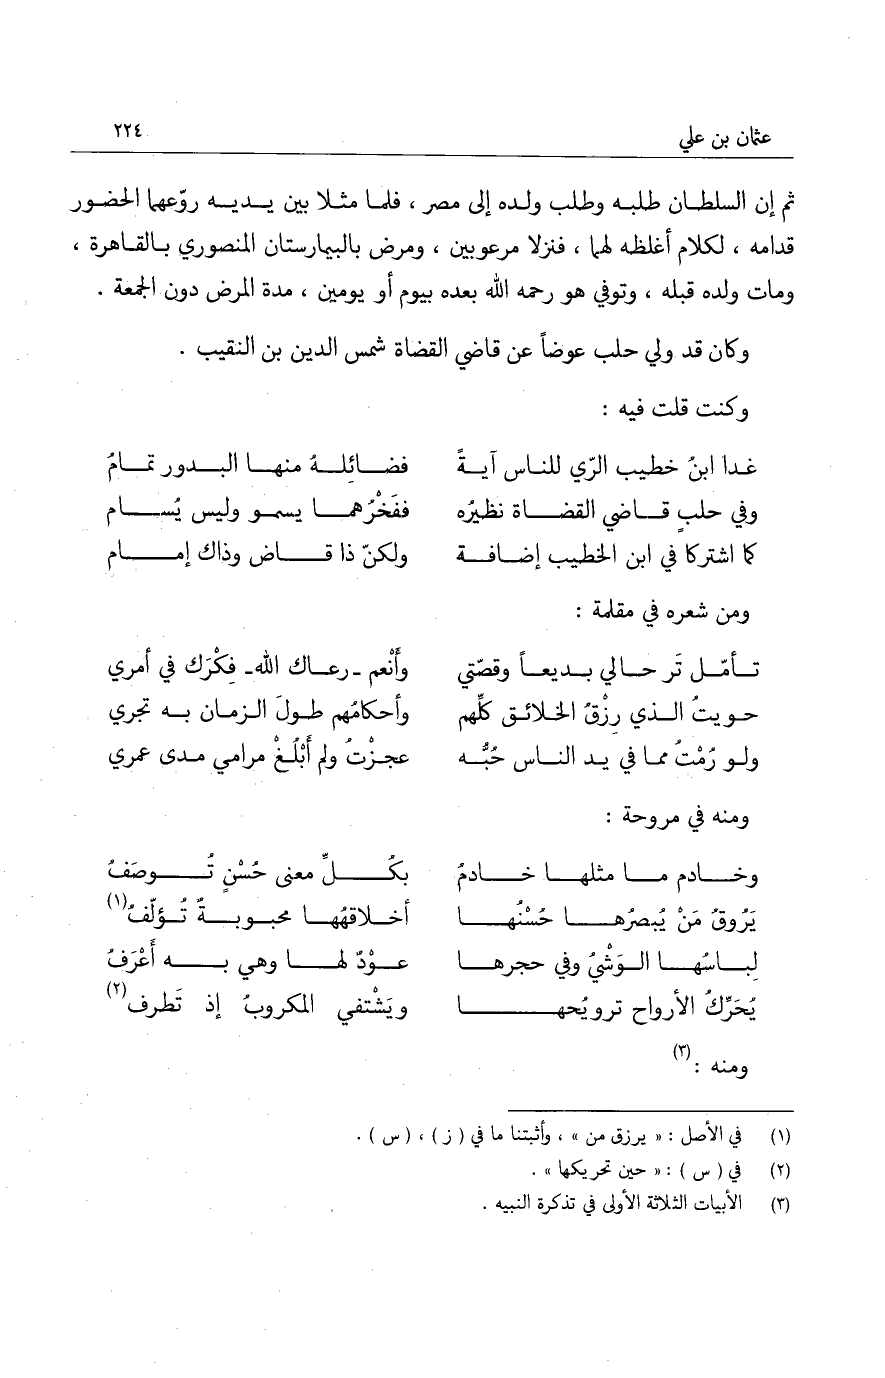 عثمان بن علي ٢٢٤
ثم إن السلطـان طلبـه وطلب ولـده إلى مصر ، فلمـا مثـلا بين يـديـه روّعهما الحضور
قدامه ، لكلام أغلظه لهما ، فنزلا مرعوبين ، ومرض بالبيمارستان المنصوري بـالقـاهرة ،
ومات ولده قبله ، وتوفي هو رحمه الله بعده بيوم أو يومين ، مدة المرض دون الجمعة .
وكان قد ولي حلب عوضاً عن قاضي القضاة شمس الدين بن النقيب .
وكنت قلت فيه :
غـدا ابنُ خطيب الرّي للنـاس آيـةً فضـائلـهُ منهـا البـدور تمـامُ
وفي حلبٍ قـاضي القضـاة نظيرُه ففَخْرُهمـا يسمـو وليس يُسـام
كما اشتركا في ابن الخطيب إضـافـة ولكنّ ذا قـاض وذاك إمـام
ومن شعره في مقلمة :
تـأمّـل تَر حـالي بـديعـاً وقصّتي وأَنْعم ـ رعـاك الله ـ فِكْرَك في أمري
حـويتُ الـذي رِزْقُ الخلائـق كلِّهم وأحكامُهم طـولَ الـزمـان بـه تجري
ولـو رُمْتُ ممـا في يـد النـاس حُبُّـه عجـزْتُ ولم أَبْلُـغْ مرامي مـدى عمري
ومنه في مروحة :
وخـادم مـا مثلهـا خـادمُ بكُـلِّ معنى حُسْنٍ تُـوصَفُ
يَرُوقُ مَنْ يُبصرُهـا حُسْنُهـا أخـلاقهُهـا محبـوبـةٌ تُـؤلّفُ(١)
لِبـاسُهـا الـوَشْيُ وفي حجرهـا عـوْدٌ لهـا وهي بـه أَعْرَفُ
يُحَرِّكُ الأرواح ترويُحهـا ويَشْتفي المكروبُ إذ تَطرف(٢)
ومنه :(٣)
(١) في الأصل : « يرزق من » ، وأثبتنا ما في ( ز ) ، ( س ) .
(٢) في ( س ) : « حين تحريكها » .
(٣) الأبيات الثلاثة الأولى في تذكرة النبيه .